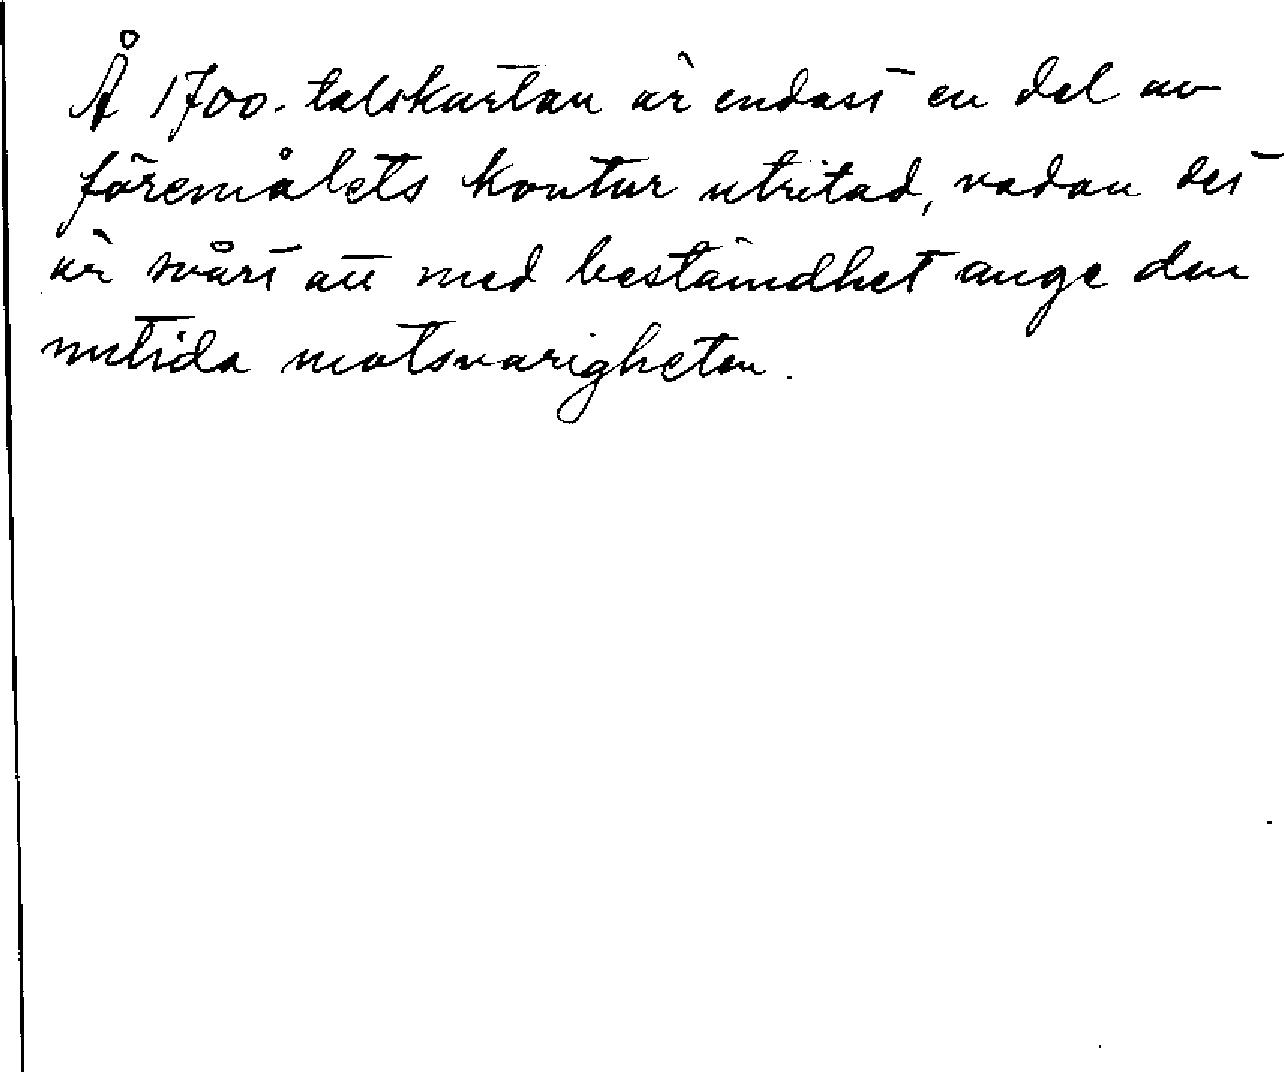 Å 1700-talskartan är endast en del av
föremålets kontur utritad, vadan det
är svårt att med bestämdhet ange den
nutida motsvarigheten.